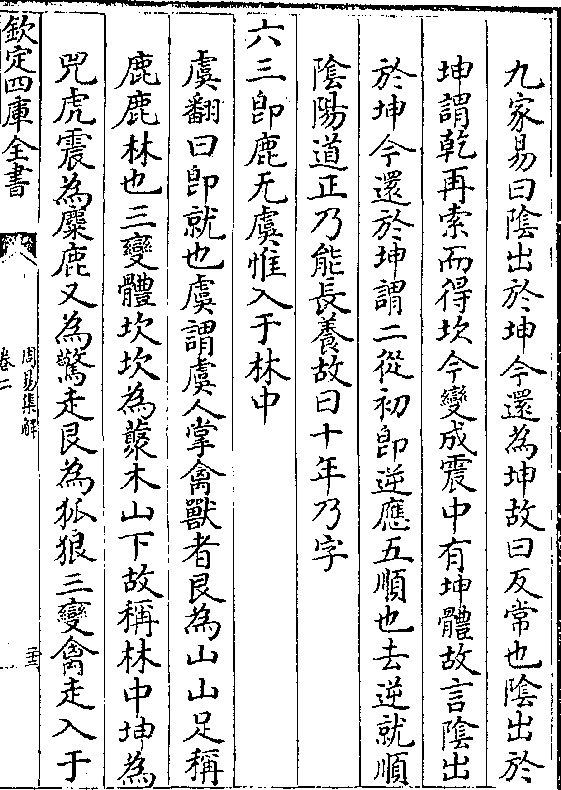 九家易曰陰出於坤今還為坤故曰反常也陰出於
坤謂乾再索而得坎今變成震中有坤體故言陰出
於坤今還於坤謂二從初即逆應五順也去逆就順
陰陽道正乃能長養故曰十年乃字
六三即鹿无虞惟入于林中
虞翻曰即就也虞謂虞人掌禽獸者艮為山山足稱
鹿鹿林也三變體坎坎為藂木山下故稱林中坤為
兕虎震為麋鹿又為驚走艮為狐狼三變禽走入于
欽定四庫全書
周易集解
卷二
二十三